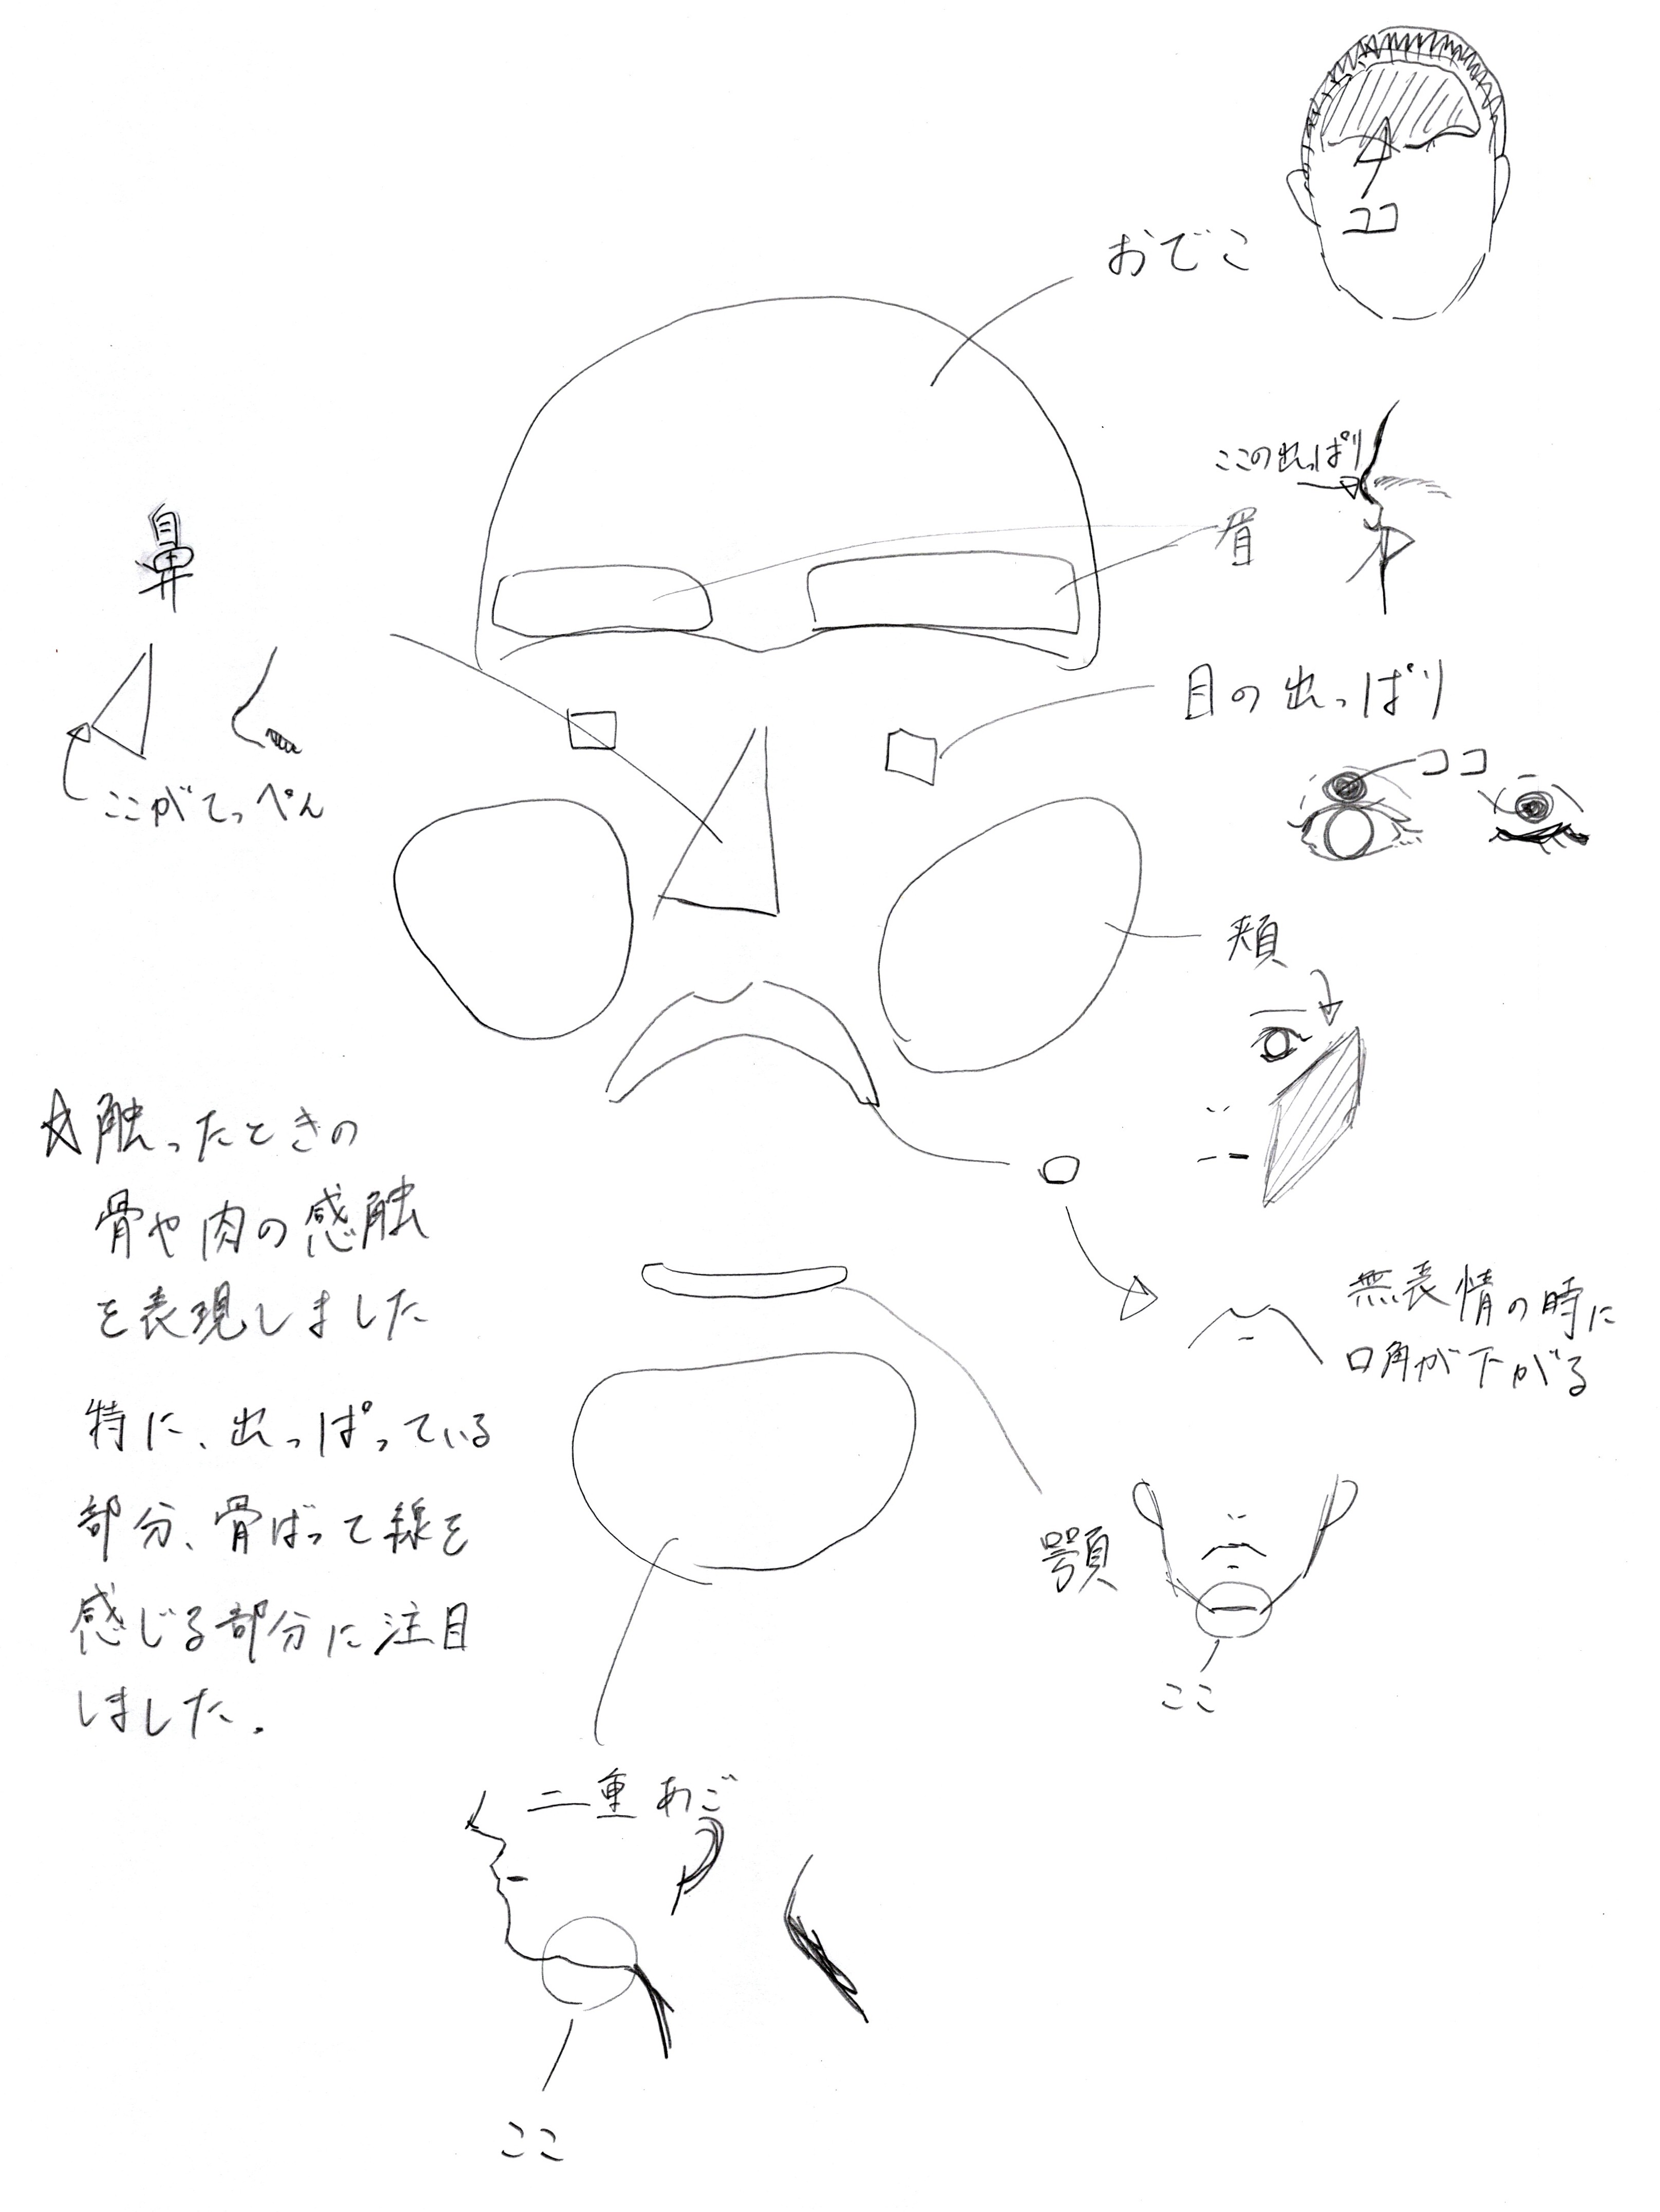 ココ
おでこ
ここの出っぱり
眉
鼻
目の出っぱり
ココ
ここがてっぺん
頬
☆触ったときの
骨や肉の感触
を表現しました
特に、出っぱっている
部分、骨ばって線を
感じる部分に注目
しました.
口
無表情の時に
口角が下がる
顎
ここ
二重あご
ここ